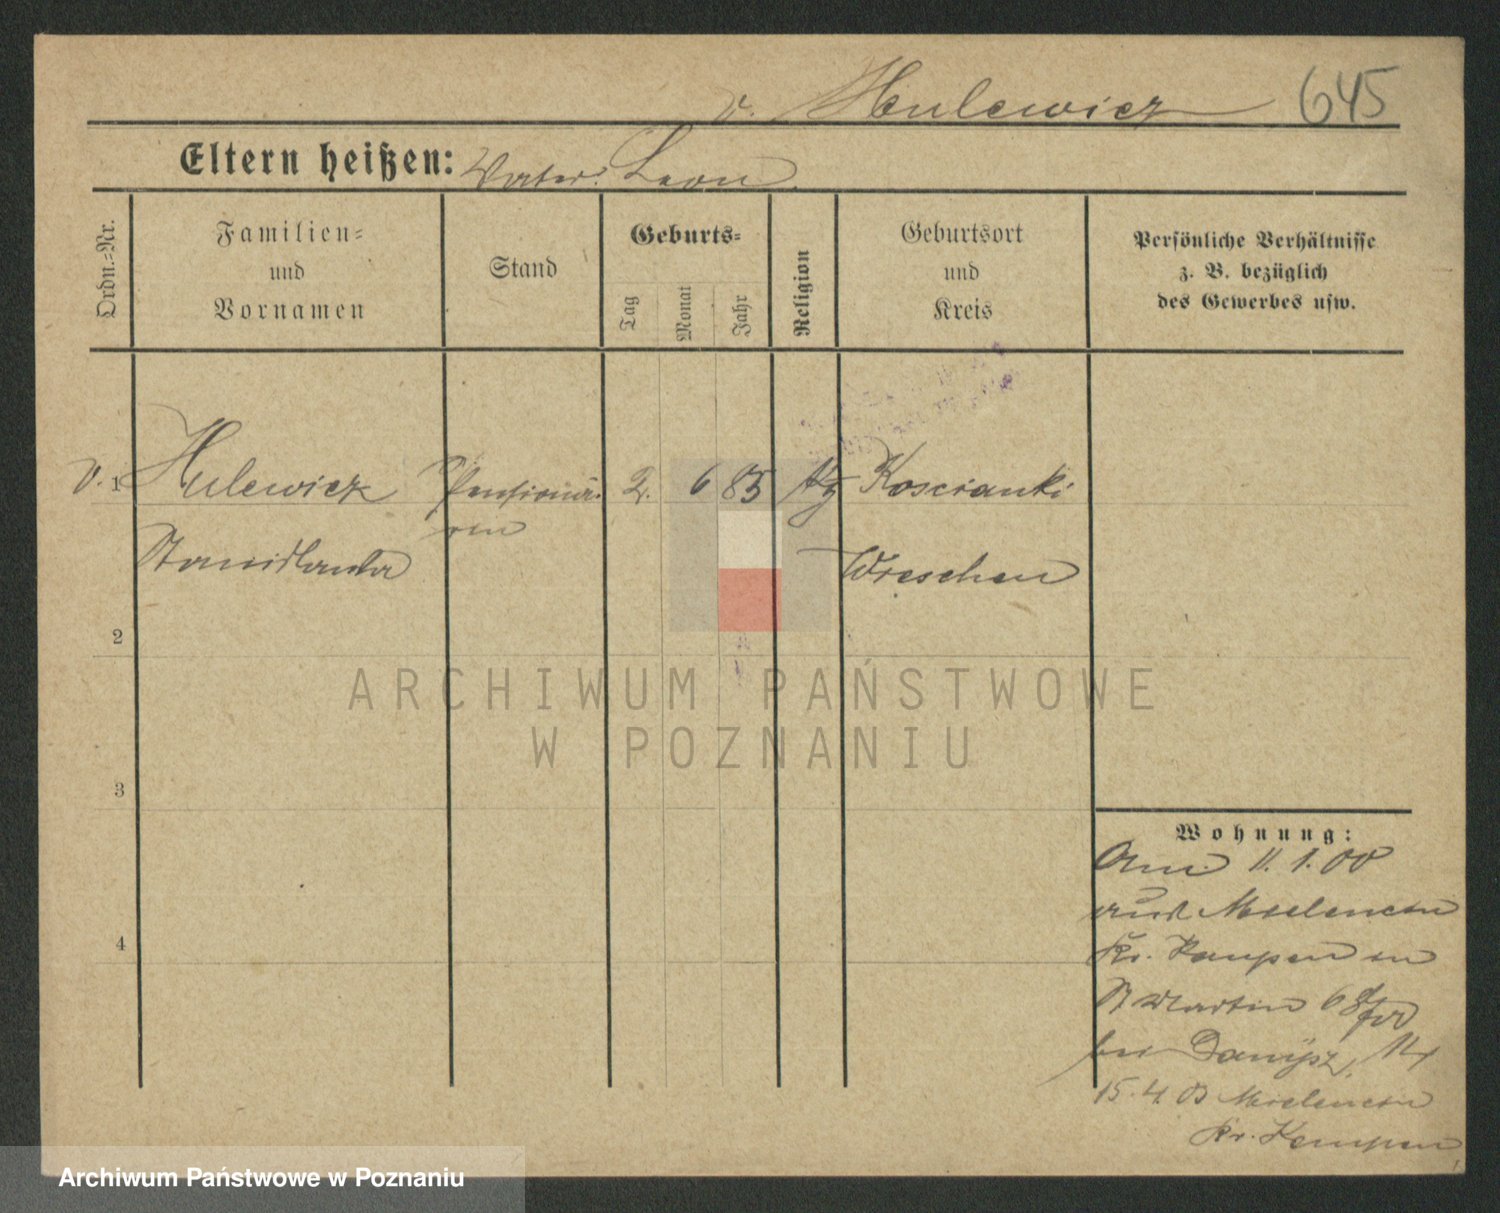 v. Hulewicz 645
Eltern heißen: Vater: Leon
Ordn.-Nr.
Familien- und Vornamen
Stand
Geburts-
Tag
Monat
Jahr
Religion
Geburtsort und Kreis
Persönliche Verhältnisse
z. B. bezüglich
des Gewerbes usw.
v. 1 Hulewicz Pensionä- 2. 6 85 Koscianki
Stanislawa rin Wreschen
2
ARCHIWUM PAŃSTWOWE
W POZNANIU
3
Wohnung:
Am 11. 1. 00
aus Mielencin
4
Kr. Kempen in
St Martin 68
bei Danysz,
15. 4. 03 Mielencin
Kr. Kempen
Archiwum Państwowe w Poznaniu